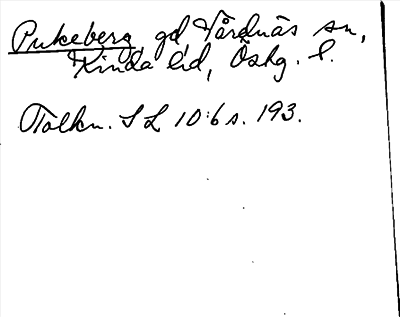 Pukeberg gd Vårdnäs sn,
Kinda hd, Östg. l.
Tolkn. SL 10:6 s. 193.